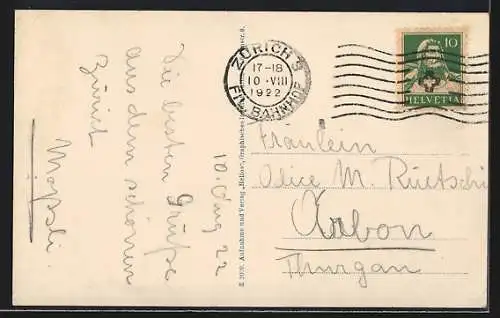 Die besten Grüße
aus dem schönen
Zürich
Möpsli.
10. Aug 22
ZÜRICH 9
17-18
10.VIII
1922
FIL. BAHNHOF
10
HELVETIA
Fräulein
Alice M. Rüetschi
Arbon
Thurgau
Aufnahme und Verlag